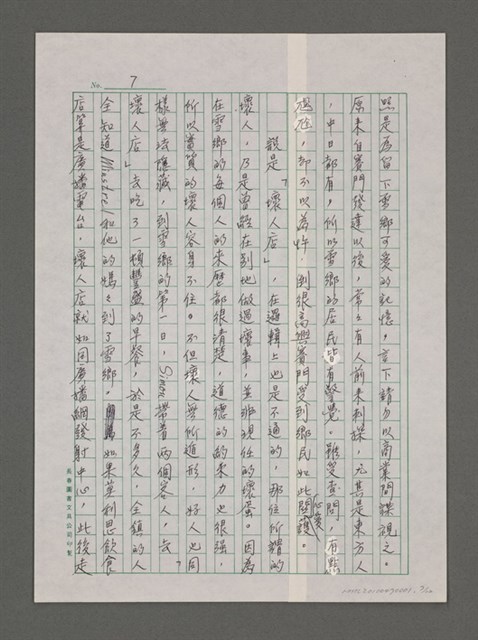 No. 7
照是為留下雪鄉可愛的記憶,言下請勿以商業間諜視之。
原來自賽門發達以後,常々有人前來刺探,尤其是東方人
,中日都有,所以雪鄉的居民皆有警覺。雖受查問,有點
尷尬,却不以為忤,到很高興賽門受到鄉民如此關護。
說是「壞人店」,在邏輯上也是不通的,那位所謂的
壞人,乃是曾經在別地做過壞事,並非現任的壞蛋。因為
在雪鄉的每個人的來歷都很清楚,道德的約束力也很強,
所以實質的壞人容身不住。不但壞人無所遁形,好人也同
樣無法隱藏,到雪鄉的第一日,Simon帶着兩個客人,去「
壞人店」去吃了一頓豐盛的早餐,於是不多久,全鎮的人
全知道 和他的媽々到了雪鄉。如果莫利思飲食
店算是廣播電台,壞人店就如同廣播網發射中心,此後走
長春圖書文具公司印製